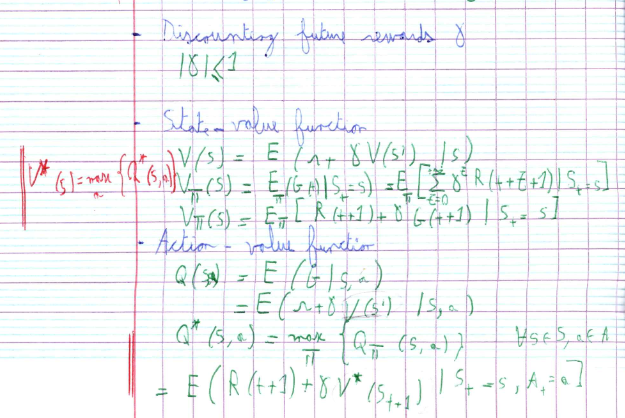 - Discounting future rewards γ
|γ|⩽1
- State-value function
V(s) = E (r + γ V(s') | s)
V*(s) = max_a {Q*(s,a)}
V_π(s) = E_π(G(t) | S_t = s) = E_π [ Σ_{t=0}^{+∞} γ^t R(t+t+1) | S_t = s ]
V_π(s) = E_π [ R(t+1) + γ G(t+1) | S_t = s ]
- Action-value function
Q(s,a) = E (G | s,a)
= E (r + γ V(s') | s,a)
Q*(s,a) = max_π { Q_π (s,a) } ∀s∈S, a∈A
= E ( R(t+1) + γ V*(S_{t+1}) | S_t = s, A_t = a ]